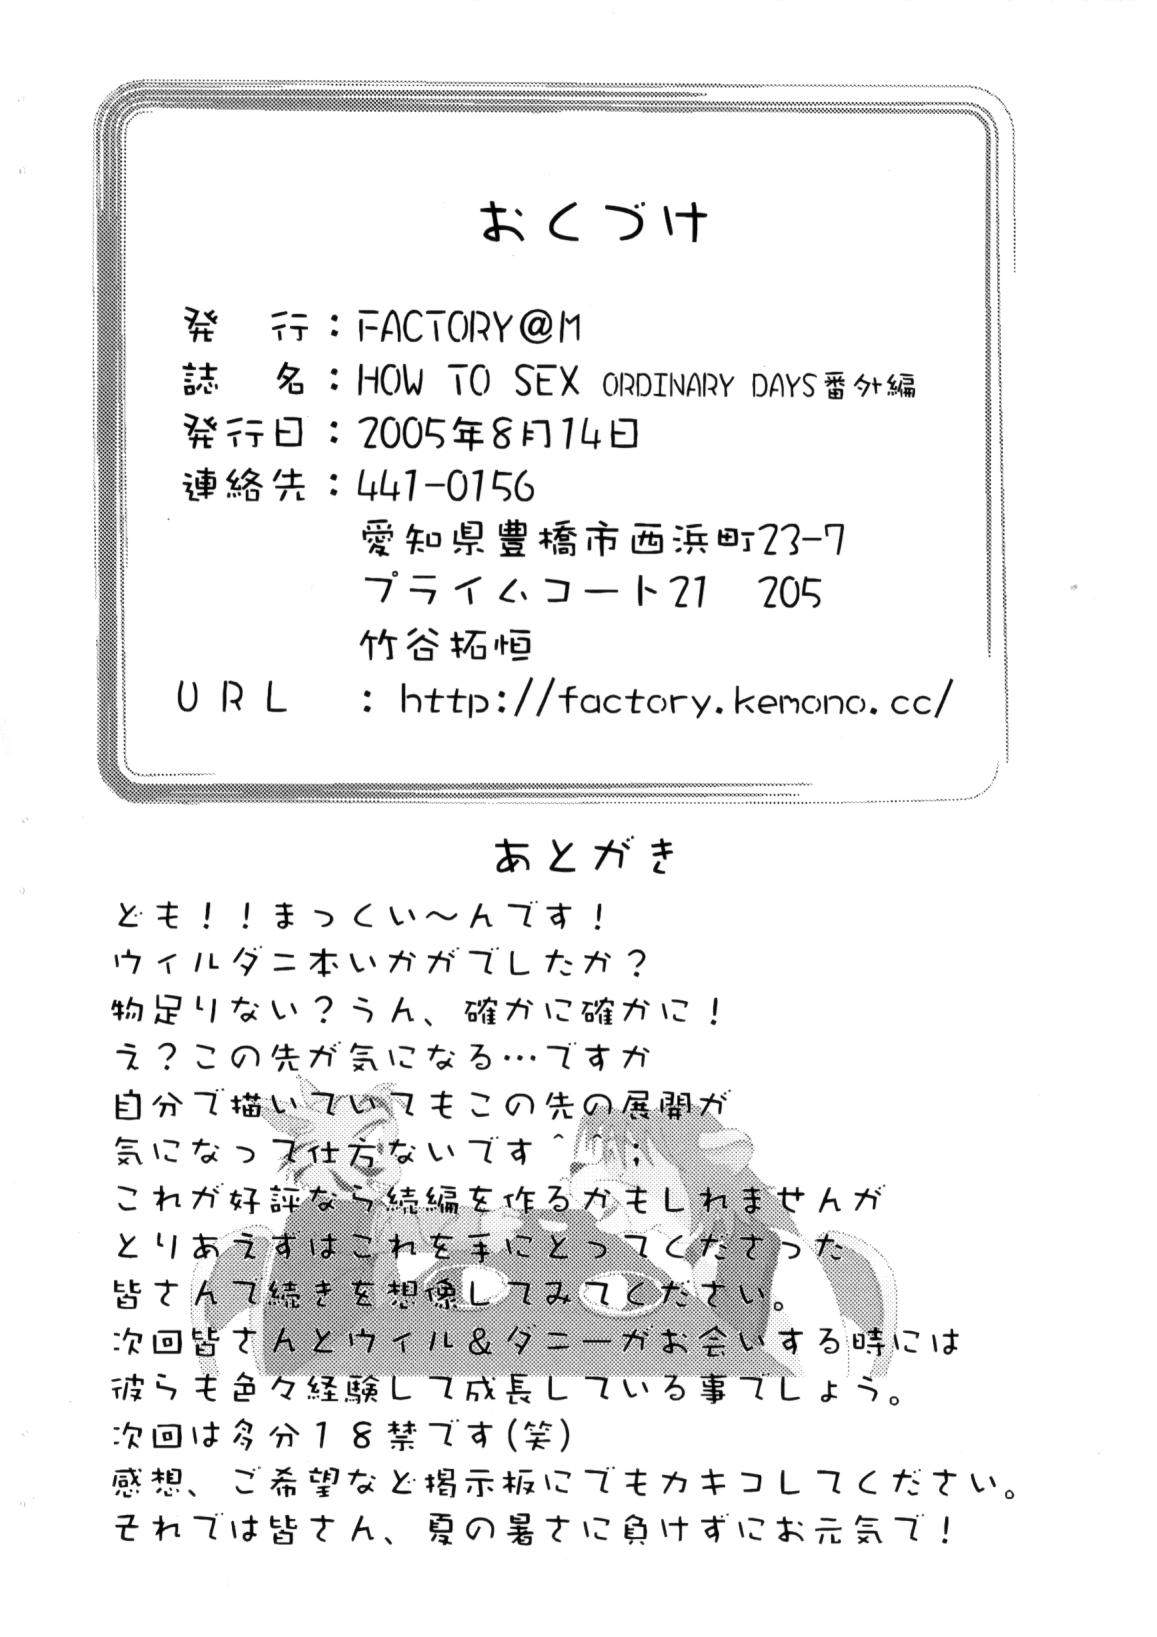 おくづけ
発　行：FACTORY@M
誌　名：HOW TO SEX ORDINARY DAYS番外編
発行日：2005年8月14日
連絡先：441-0156
愛知県豊橋市西浜町23-7
プライムコート21　205
竹谷拓恒
URL　：http://factory.kemono.cc/
あとがき
ども！！まっくい～んです！
ウィルダニ本いかがでしたか？
物足りない？うん、確かに確かに！
え？この先が気になる…ですか
自分で描いていてもこの先の展開が
気になって仕方ないです＾＾；
これが好評なら続編を作るかもしれませんが
とりあえずはこれを手にとってくださった
皆さんで続きを想像してみてください。
次回皆さんとウィル＆ダニーがお会いする時には
彼らも色々経験して成長している事でしょう。
次回は多分１８禁です(笑)
感想、ご希望など掲示板にでもカキコしてください。
それでは皆さん、夏の暑さに負けずにお元気で！